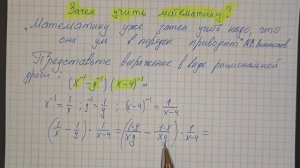 Зачем учить математику?
"Математику уже затем учить надо, что
она ум в порядок приводит" М.В. Ломоносов
Представьте выражение в виде рациональной
дроби:
(x⁻¹ - y⁻¹)(x-y)⁻¹ =
x⁻¹ = 1/x ; y⁻¹ = 1/y ; (x-y)⁻¹ = 1/(x-y)
(1/x - 1/y) · 1/(x-y) = (1·y/xy - 1·x/xy) · 1/(x-y) =